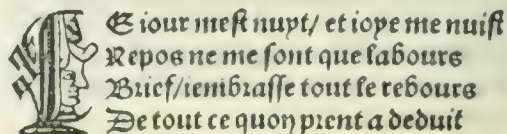 LE iour mest nuyt/ et ioye me nuist
Repos ne me sont que labours
Brief/iembrasse tout le rebours
De tout ce quon prent a deduit